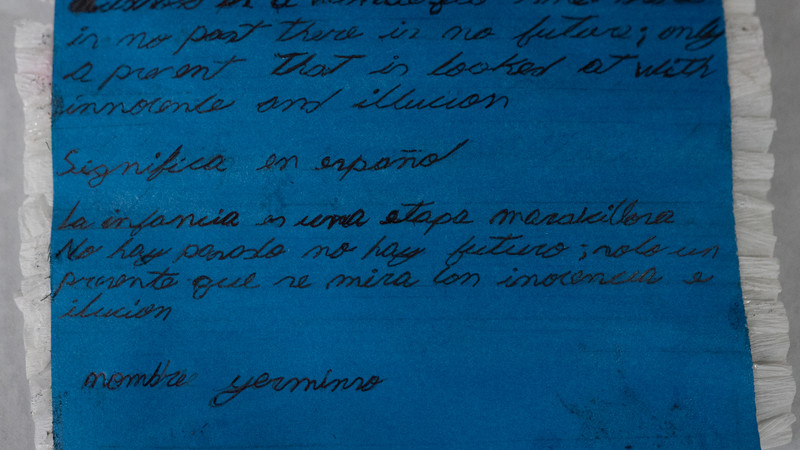 in no past there is no future; only
a present that is looked at with
innocente and illucion
Significa en español
La infancia es una etapa maravillosa
No hay pasado no hay futuro; solo un
presente que se mira con inocencia e
ilucion
nombre yerminso